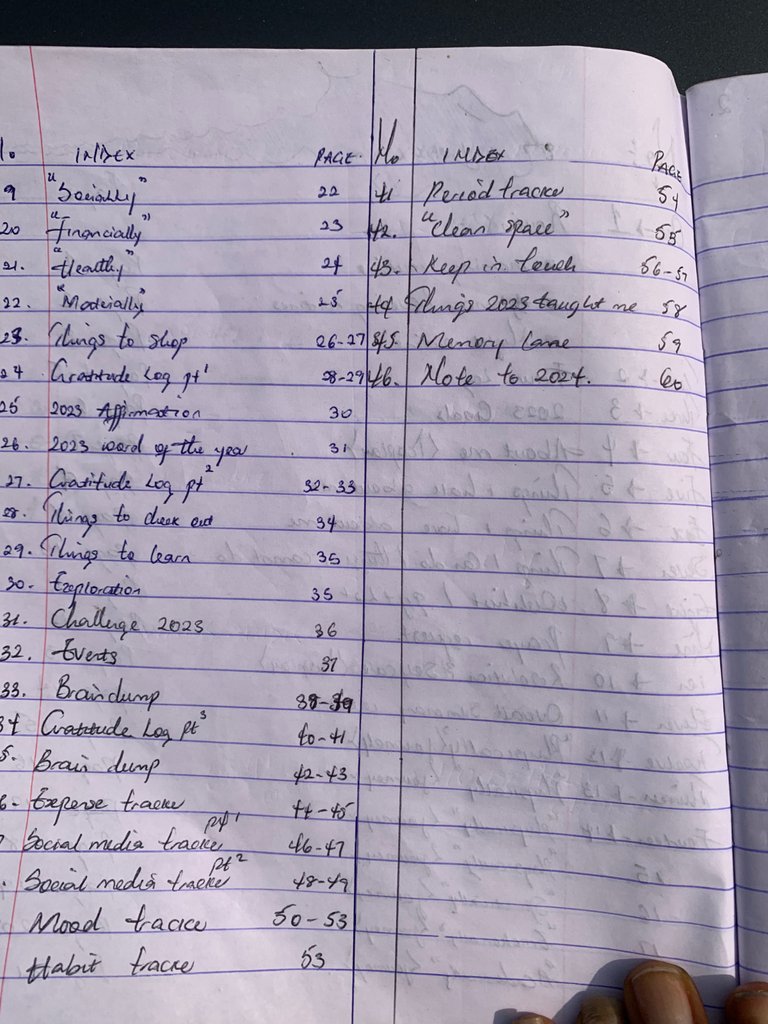 INDEX PAGE.
9 "Socially" 22
20 "Financially" 23
21. "Healthy" 24
22. "Materially" 25
23. Things to shop 26-27
24 Gratitude Log pt 1 28-29
25 2023 Affirmation 30
26. 2023 word of the year 31
27. Gratitude Log pt 2 32-33
28. Things to check out 34
29. Things to learn 35
30. Exploration 35
31. Challenge 2023 36
32. Events 37
33. Brain dump 38-39
34 Gratitude Log pt 3 40-41
5. Brain dump 42-43
6. Expense tracke 44-45
Social media tracke pt 1 46-47
Social media tracke pt 2 48-49
Mood tracke 50-53
Habit tracke 53
No INDEX PAGE
41 Period tracke 54
42. "Clean space" 55
43. Keep in touch 56-57
44 Things 2023 taught me 58
45. Memory lane 59
46. Note to 2024. 60